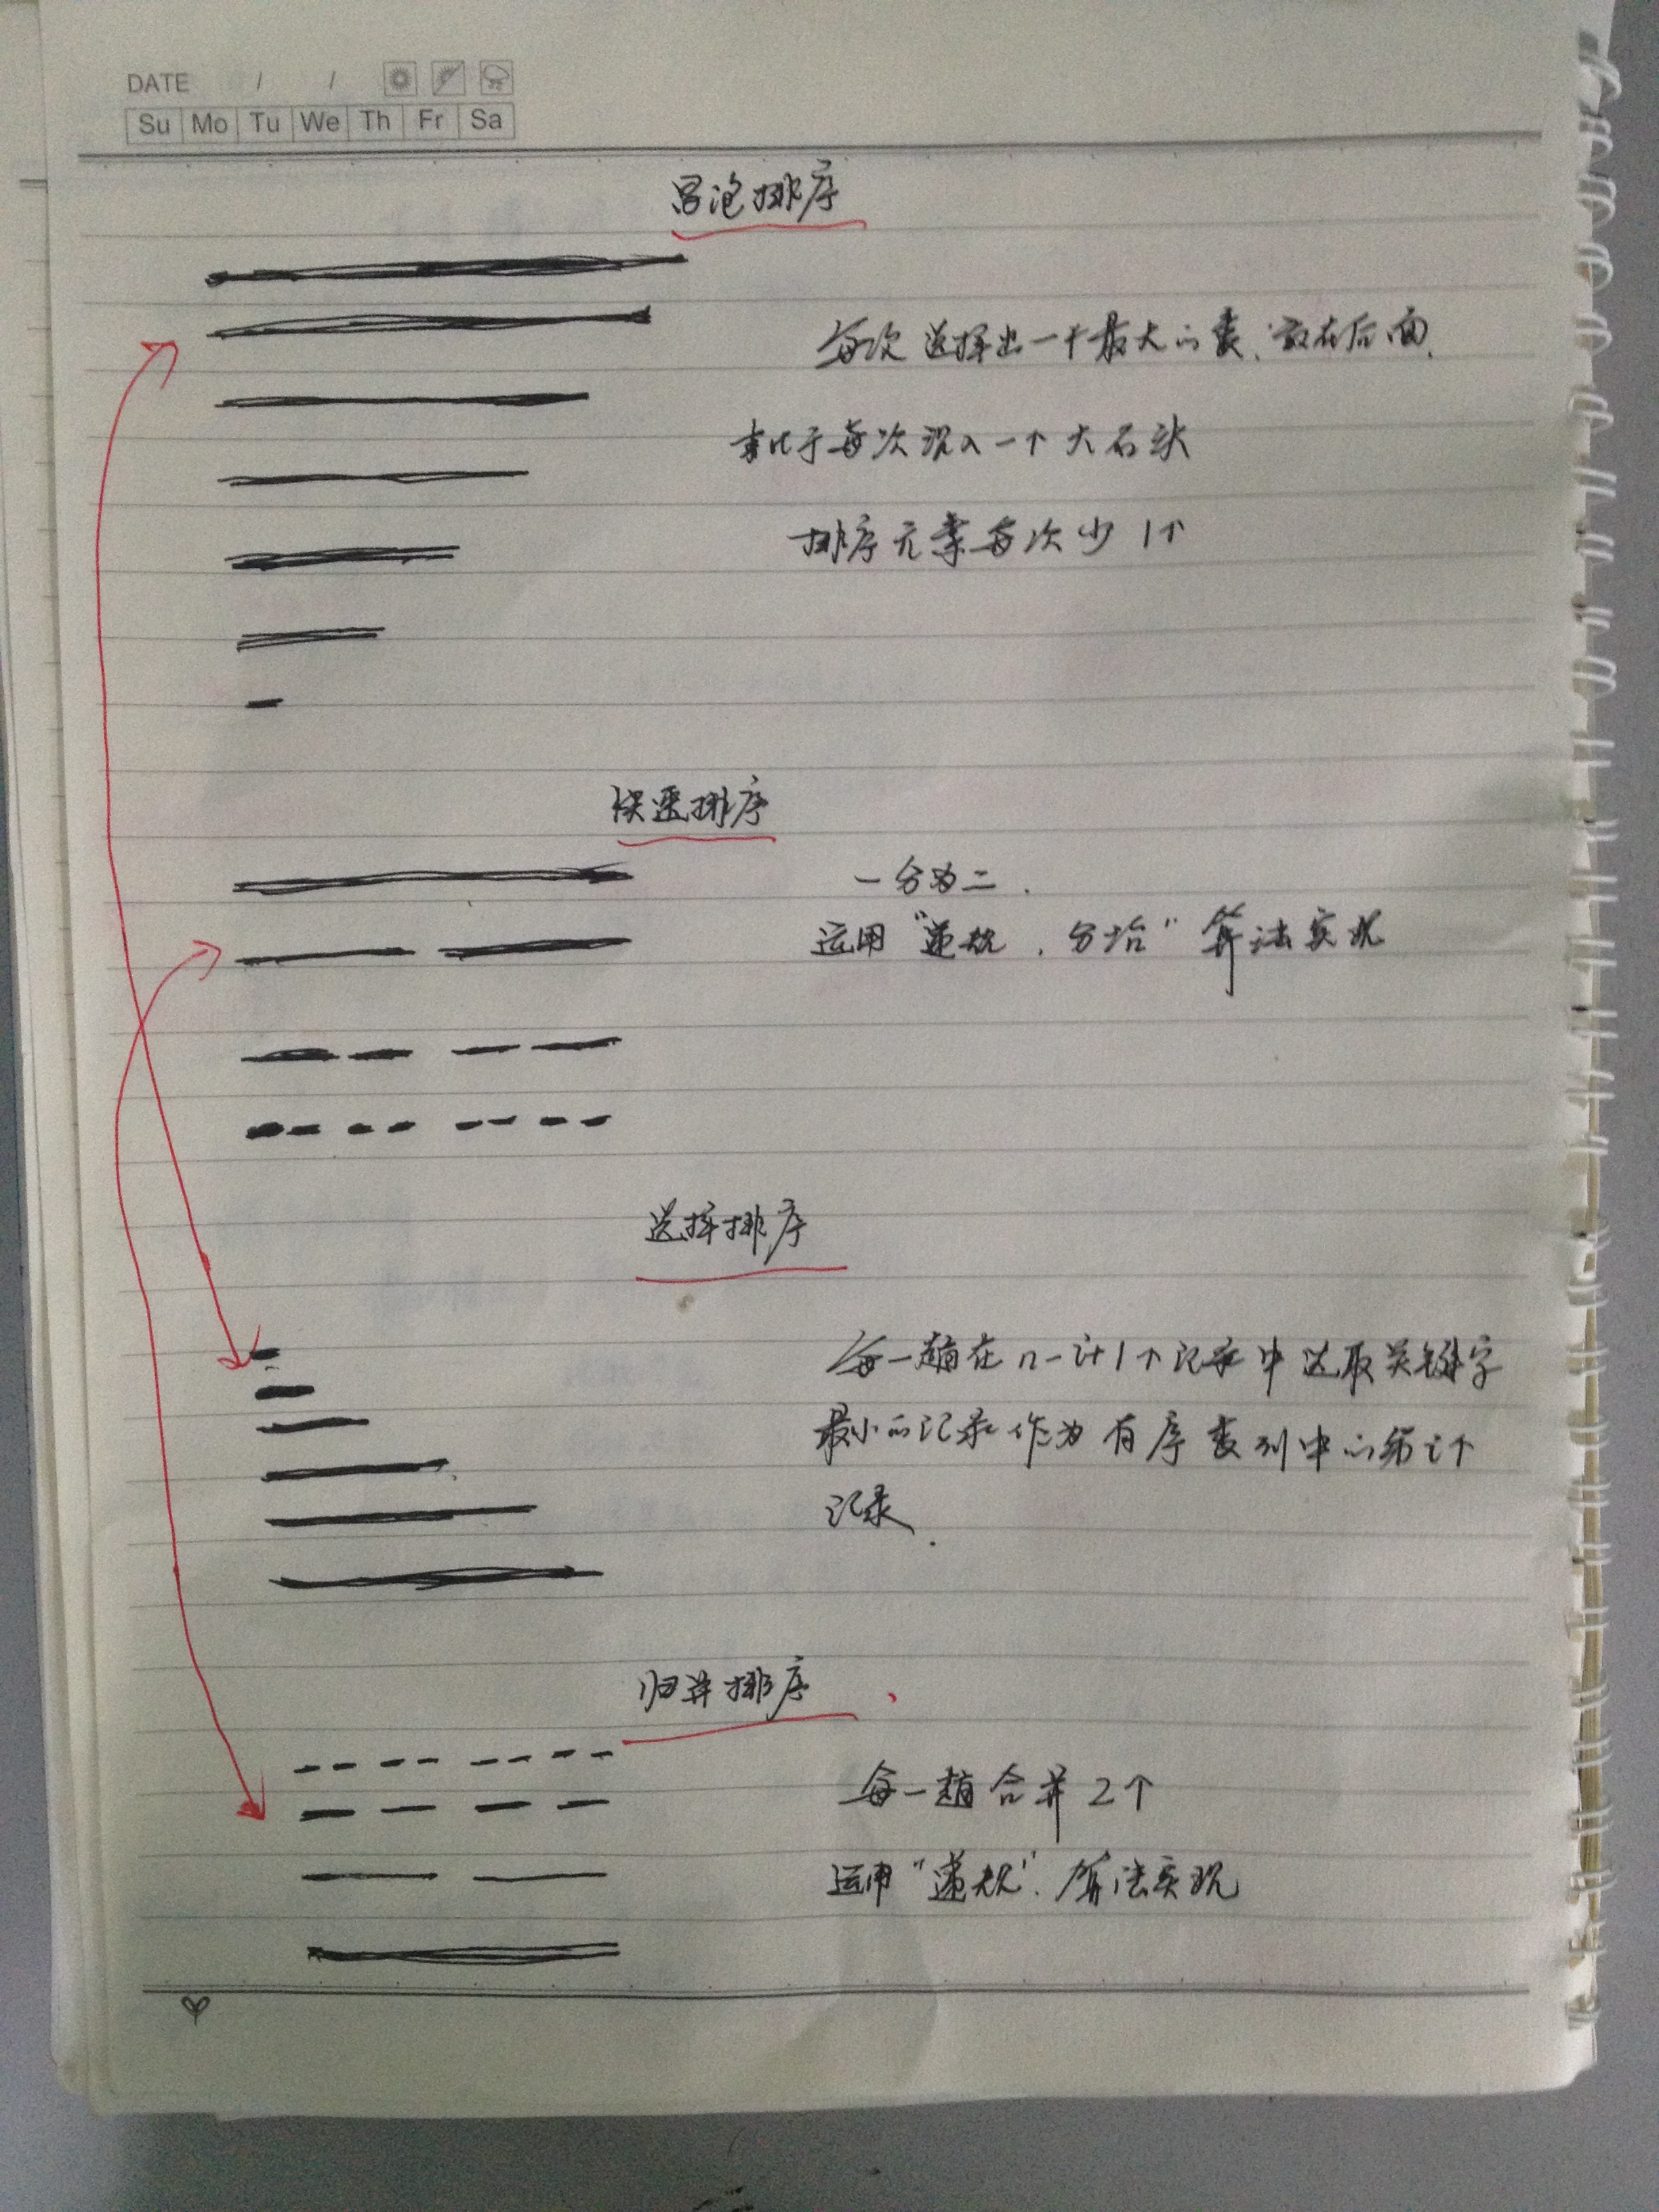 DATE / /
Su Mo Tu We Th Fr Sa
冒泡排序
每次选择出一个最大的数,放在后面.
类比于每次沉入一个大石头
排序元素每次少1个
快速排序
一分为二.
运用“递规.分治”算法实现
选择排序
每一趟在n-i+1个记录中选取关键字
最小的记录作为有序数列中的第i个
记录.
归并排序
每一趟合并2个
运用“递规”.算法实现